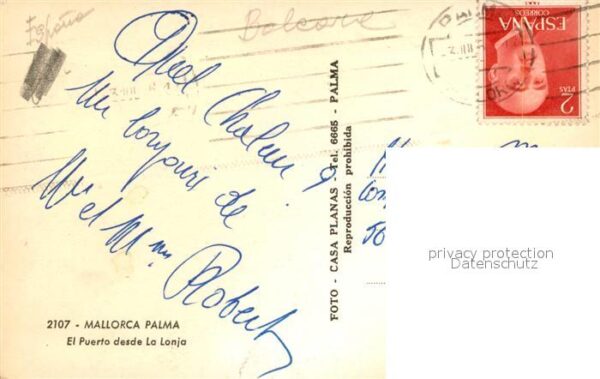 España
Baleare
ESPAÑA
CORREOS
2
PTAS
Quel Chaleur !
Un bonjour de
M et Mme Robert
FOTO - CASA PLANAS - Tel. 6665 - PALMA
Reproducción prohibida
2107 - MALLORCA PALMA
El Puerto desde La Lonja
privacy protection
Datenschutz